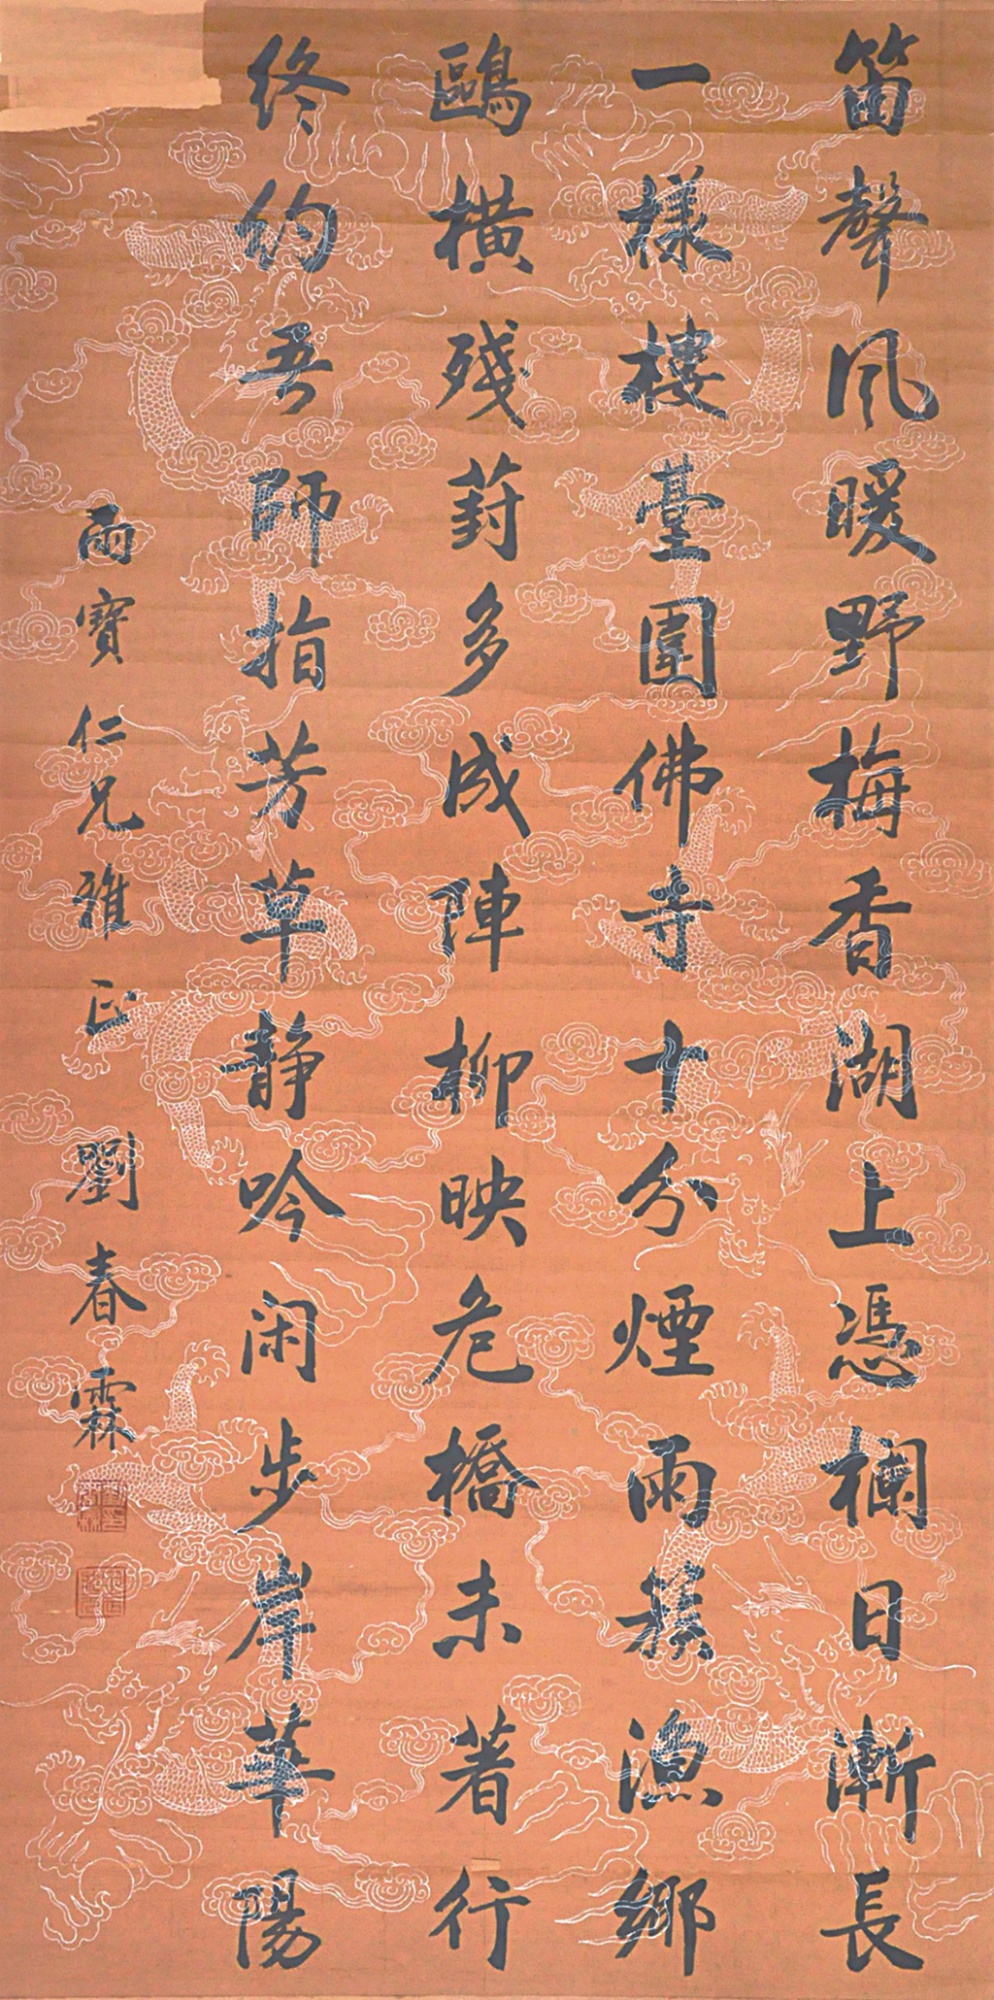 笛聲風暖野梅香湖上憑欄日漸長
一樣樓臺圍佛寺十分煙雨簇漁鄉
鷗橫殘葑多成陣柳映危橋未著行
終約吾師指芳草静吟闲步岸華陽
雨寶仁兄雅正 劉春霖